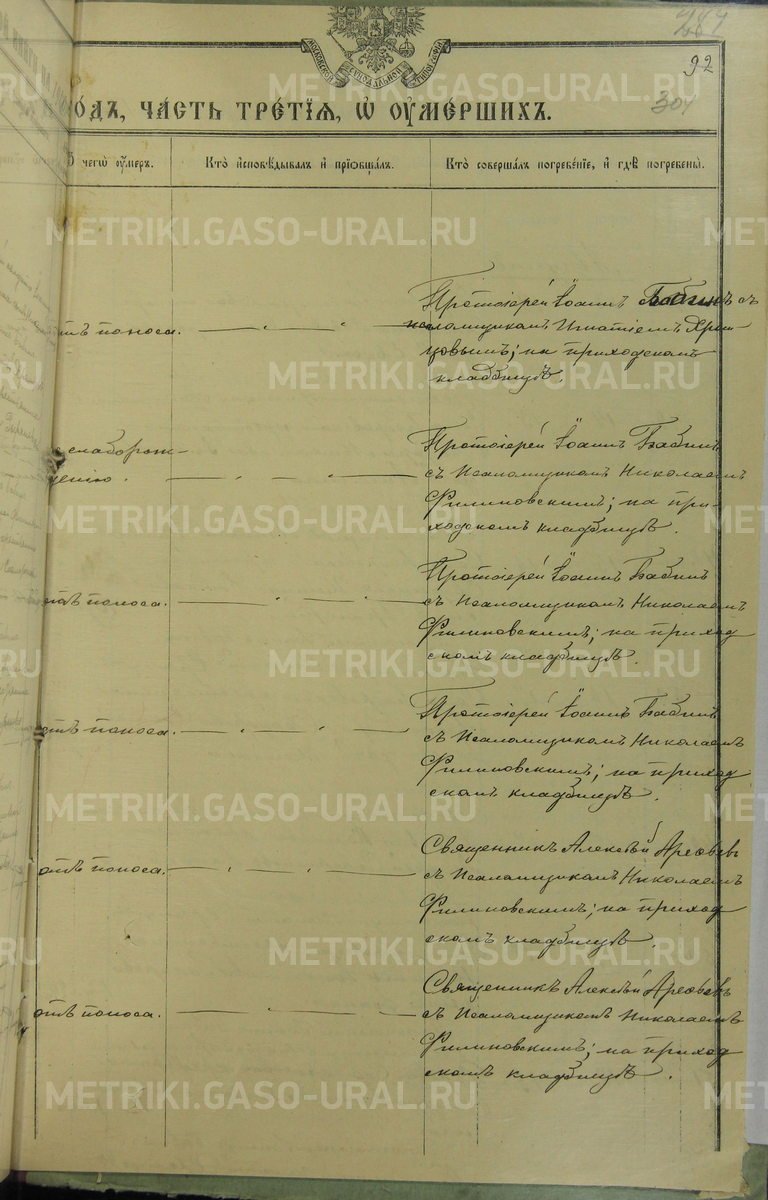 287
92
304
МОСКОВСКОЙ СѴНОДАЛЬНОЙ ТИПОГРАФІИ
ГОДЪ, ЧАСТЬ ТРЕТІЯ, Ѡ ОУМЕРШИХЪ.
Ѿ чегѡ оумеръ.
Кто исповѣдывалъ и приѻбщалъ.
Кто совершалъ погребеніе, и гдѣ погребены.
отъ поноса.
Протоіерей Іоаннъ Бабинъ съ
псаломщикомъ Игнатіемъ
на приходскомъ
кладбищѣ.
слаборож-
денію.
Протоіерей Іоаннъ Бабинъ
съ Псаломщикомъ Николаемъ
Филиповскимъ; на при-
ходскомъ кладбищѣ.
отъ поноса.
Протоіерей Іоаннъ Бабинъ
съ Псаломщикомъ Николаемъ
Филиповскимъ; на приход
скомъ кладбищѣ.
отъ поноса.
Протоіерей Іоаннъ Бабинъ
съ Псаломщикомъ Николаемъ
Филиповскимъ; на приход
скомъ кладбищѣ.
отъ поноса.
Священникъ Алексѣй
съ Псаломщикомъ Николаемъ
Филиповскимъ; на приход
скомъ кладбищѣ.
отъ поноса.
Священникъ Алексѣй
съ Псаломщикомъ Николаемъ
Филиповскимъ; на приход
скомъ кладбищѣ.
METRIKI.GASO-URAL.RU